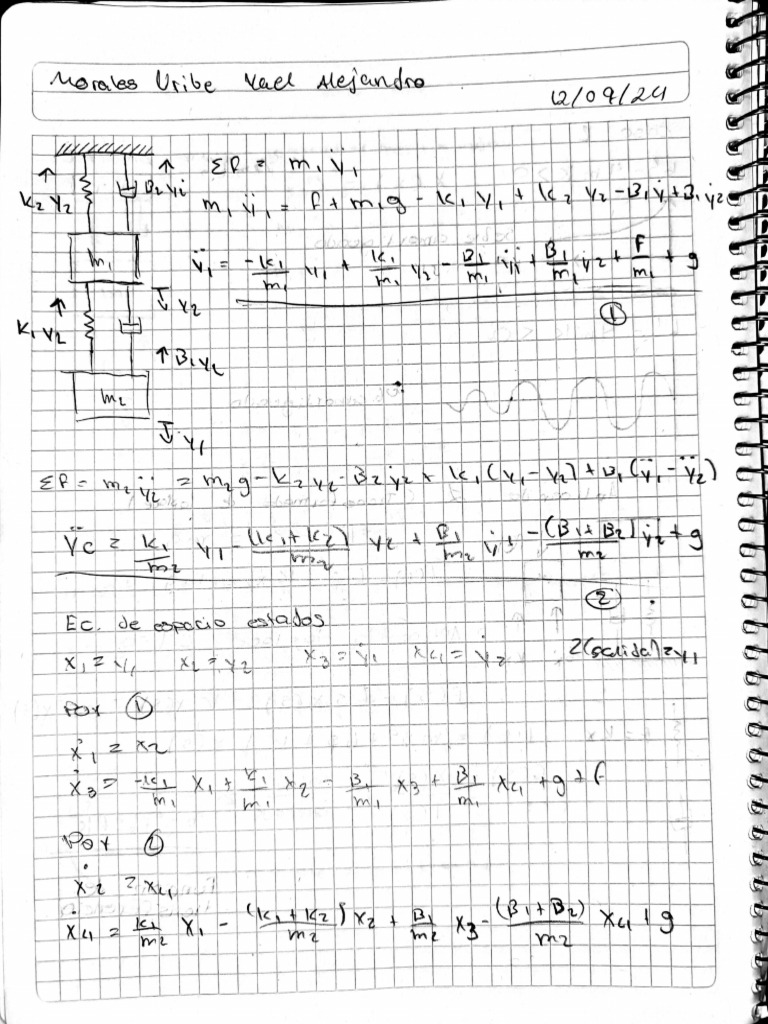 Morales Uribe Yael Alejandro
12/09/24
ΣF = m₁ ÿ₁
K₂ Y₂
B₂ ẏ₂
m₁ ÿ₁ = f + m₁g - k₁ y₁ + k₂ y₂ - B₁ ẏ₁ + B₁ ẏ₂
m₁
ÿ₁ = -k₁/m₁ y₁ + k₁/m₁ y₂ - B₁/m₁ ẏ₁ + B₁/m₁ ẏ₂ + f/m₁ + g
Y₂
①
K₁ Y₂
B₁ Y₂
m₂
Y₁
ΣF = m₂ ÿ₂ = m₂g - k₂ y₂ - B₂ ẏ₂ + k₁ (y₁ - y₂) + B₁ (ÿ₁ - ÿ₂)
ÿ₂ = k₁/m₂ y₁ - (k₁ + k₂)/m₂ y₂ + B₁/m₂ ẏ₁ - (B₁ + B₂)/m₂ ẏ₂ + g
②
Ec. de espacio estados
x₁ = y₁ x₂ = y₂ x₃ = ẏ₁ x₄ = ẏ₂ Z(salida) = y₁
Por ①
ẋ₁ = x₂
ẋ₃ = -k₁/m₁ x₁ + k₁/m₁ x₂ - B₁/m₁ x₃ + B₁/m₁ x₄ + g + f
Por ②
ẋ₂ = x₄
ẋ₄ = k₁/m₂ x₁ - (k₁ + k₂)/m₂ x₂ + B₁/m₂ x₃ - (B₁ + B₂)/m₂ x₄ + g